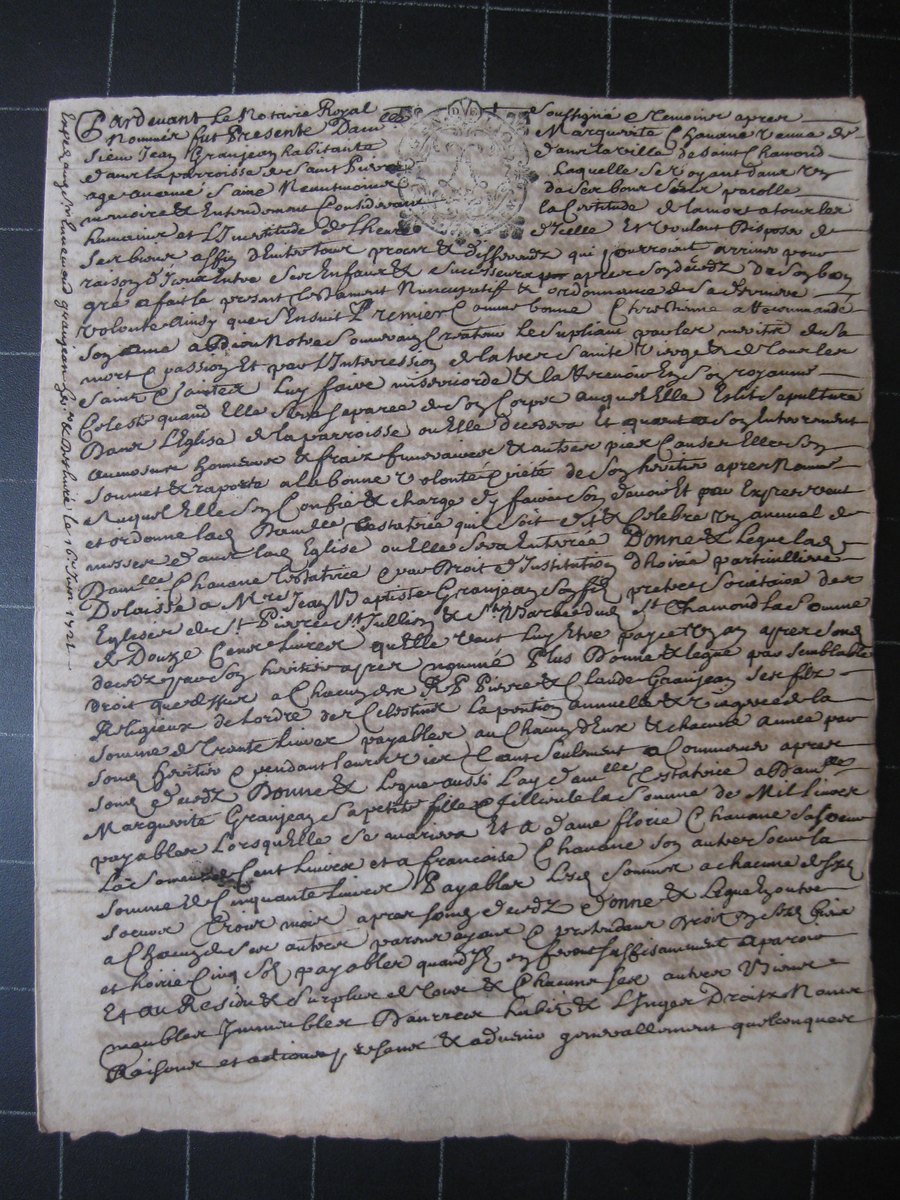 Pardevant Le Notaire Royal soussigné & temoins apres
Nommes fut Presente Dam^lle Marguerite Chavane veuve de
sieur Jean Granjean habitante dans la ville de saint Chamond
dans la parroisse de saint Pierre Laquelle se voyant dans un
age avancé saine Neantmoins de ses bons sens parolle
memoire & Entendement Considerant la Certitude de la mort a tous les
humains et L'Incertitude de L'heure d'Icelle Et voulant Disposer de
ses biens affin d'Eviter tous proces & differendz qui pourroient arriver pour
raison d'Iceux Entre ses Enfans & successeurs apres son décédz De son bon
gré a fait le present testament Nuncupatif & ordonnance de sa derniere
volonte Ainsy que s'Ensuit Premier Comme bonne Chrestienne a recommandé
son ame a Dieu Notre souverain Createur le supliant par les merites de sa
mort & passion Et par L'Intercession de la tres sainte Vierge & de tous les
saints & saintes Luy faire misericorde & la recevoir En son royaume
Celeste quand Elle sera separee de son Corps auquel Elle Eslit sepulture
Dans L'Eglise de la parroisse ou Elle decedera Et quant a son Enterrement
aumosnes honneurs & fraiz funeraires & autres pies Causes Elle s'en
soumet & raporte a la bonne volonté & pieté de son heritier apres Nommé
Auquel Elle s'en Confie & charge d'y faire son devoir Et par Expres veut
et ordonne lad Dam^lle testatrice qu'il soit dit & Celebré un annuel de
messes dans lad Eglise ou Elle sera Enterrée Donne & Legue lad
Dam^lle Chavane testatrice par Droit d'Institution d'hoirie particulliere
Delaisse a M^re Jean Baptiste Granjean son fils pretre societaire des
Eglises de S^t Pierre S^t Jullien & S^t Barthelemy St Chamond La somme
de Douze Cens Livres qu'elle veut Luy Etre payée un an apres sond
decedz par son heritier apres nommé Plus Donne & legue par semblable
droit que dessus a Chacun des R P Pierre & Claude Granjean ses filz
Religieux de L'ordre des Celestins La pention annuelle & viagere de la
somme de Trente Livres payables au Chacun d'Eux & chacune année par
sond heritier & pendant leurs vies tant seulement a Commencer apres
sond décedz Donne & Legue aussi Lad dam^lle testatrice a Dam^lle
Marguerite Granjean sa petite fille & fillieule la somme de Mil Livres
payables Lors qu'Elle se mariera Et a dame florie Chavane sa soeur
La somme de Cent Livres et a francoise Chavane son autre soeur la
somme de Cinquante Livres Payables Lesd sommes a chacune desd
soeurs trois mois apres sond decedz Donne & Legue En outre
a Chacun de ses autres parens ayant & pretendant Droit En sesd biens
et hoirie Cinq sols payables quand Ils En feront suffisamment aparoir
Et au Residu & surplus de tous & Chacuns ses autres Biens
meubles Immeubles Danrrées L'Inger Droits Noms
Raisons et actions presens & advenir generallement quelconques